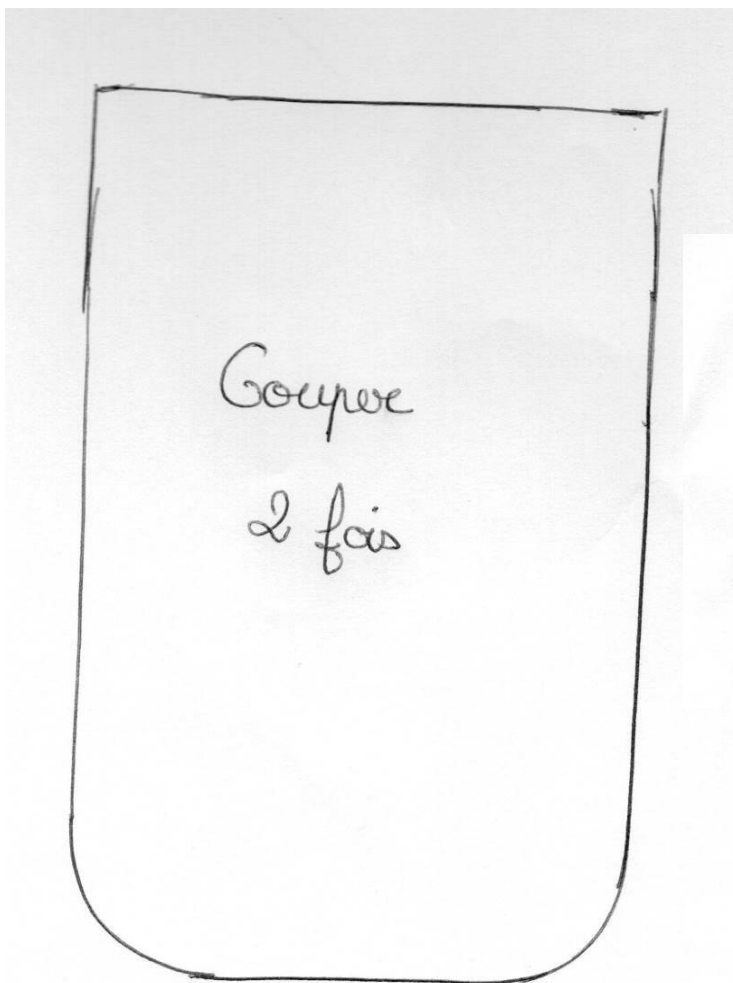 Couper
2 fois